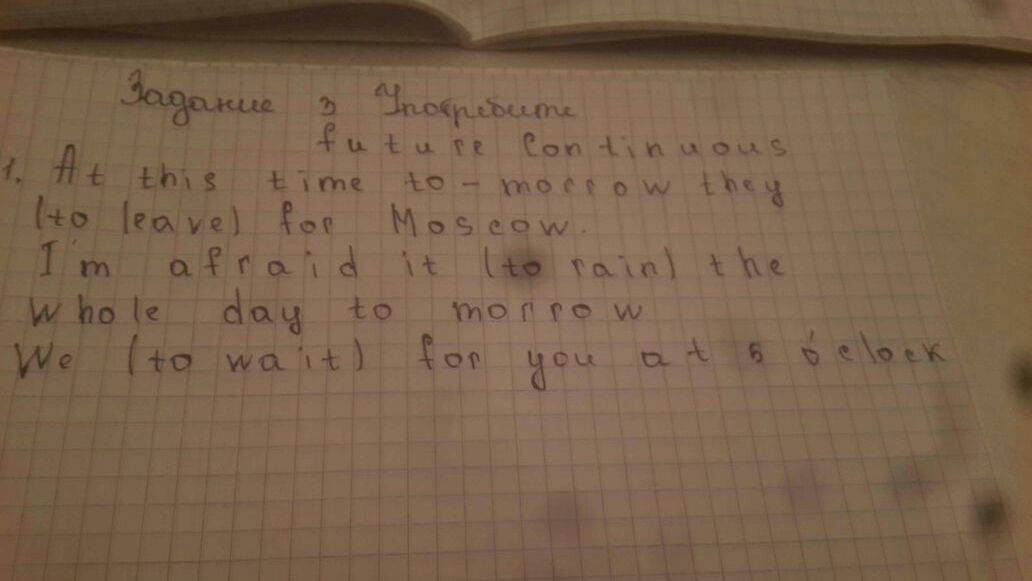 Задание 3 Употребите
future Continuous
1. At this time to-morrow they
(to leave) for Moscow.
I'm afraid it (to rain) the
whole day to morrow
We (to wait) for you at 5 o'clock